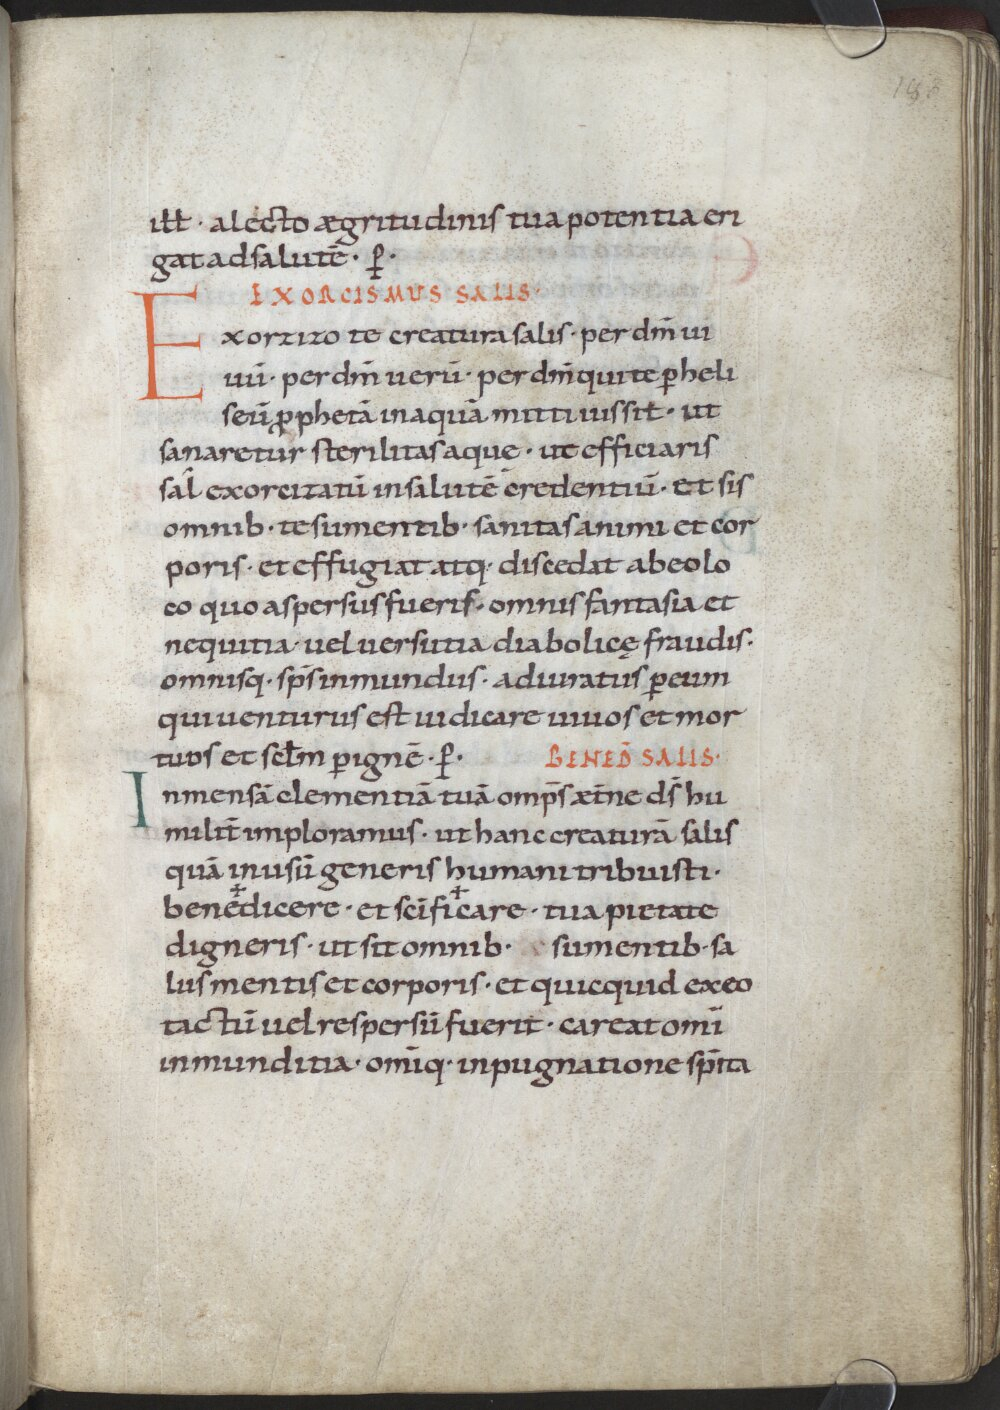 ill̄ · alecto ægritudinis tua potentia eri
gat ad salutē · p̄ ·
EXORCISMUS SALIS ·
Exorzizo te creatura salis · per dm̄ ui
uū · per dm̄ uerū · per dm̄ qui te p̄ heli
seū p̄phetā in aquā mitti iussit · ut
sanaretur sterilitas aque · ut efficiaris
sal exorcizatū in salutē credentiū · et sis
omnib · te sumentib · sanitas animi et cor
poris · et effugiat atq · discedat ab eo lo
co quo aspersus fueris · omnis fantasia et
nequitia · uel uersutia diabolicę fraudis ·
omnisq · sp̄s inmundus · adiuratus p̄ eum
qui uenturus est iudicare uiuos et mor
tuos et sclm̄ p̄ ignē · p̄ · BENED̄ SALIS ·
Inmensā clementiā tuā omp̄s ætn̄e ds̄ hu
milit̄ imploramus · ut hanc creaturā salis
quā in usū generis humani tribuisti ·
bene✝dicere · et sc̄ifi✝care · tua pietate
digneris · ut sit omnib · sumentib · sa
lus mentis et corporis · et quicquid ex eo
tactū uel respersū fuerit · careat omī
inmunditia · omīq · inpugnatione sp̄ita